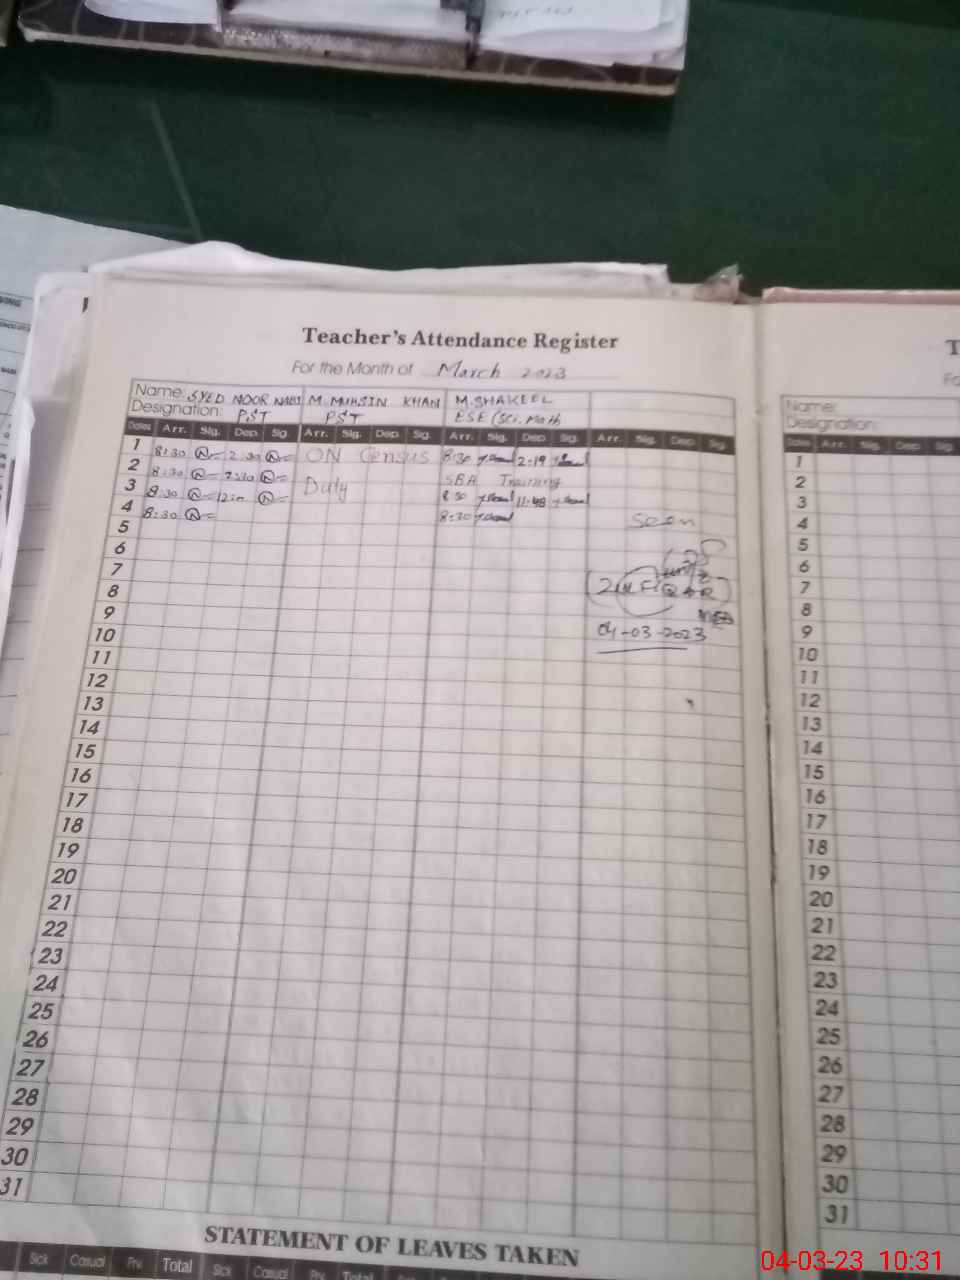 Teacher's Attendance Register
For the Month of March 2023
Name: SYED NOOR NABI M. MUHSIN KHAN M. SHAKEEL
Designation: PST PST ESE (Sci. Math
Dates Arr. Sig. Dep. Sig. Arr. Sig. Dep. Sig. Arr. Sig. Dep. Sig. Arr. Sig. Dep. Sig.
1 8:30 2:30 ON Census 8:30 2:19
2 8:30 2:30 SBA Training
3 8:30 Duty 8:30 11:48
4 8:30 8:30 Seen
5
6
7
8 (ZULFIQAR)
9 MEA
10 04-03-2023
11
12
13
14
15
16
17
18
19
20
21
22
23
24
25
26
27
28
29
30
31
STATEMENT OF LEAVES TAKEN
Sick Casual Prv. Total Sick Casual Prv. Total
T
Fo
Name:
Designation:
Dates Arr. Sig. Dep. Sig.
1
2
3
4
5
6
7
8
9
10
11
12
13
14
15
16
17
18
19
20
21
22
23
24
25
26
27
28
29
30
31
04-03-23 10:31